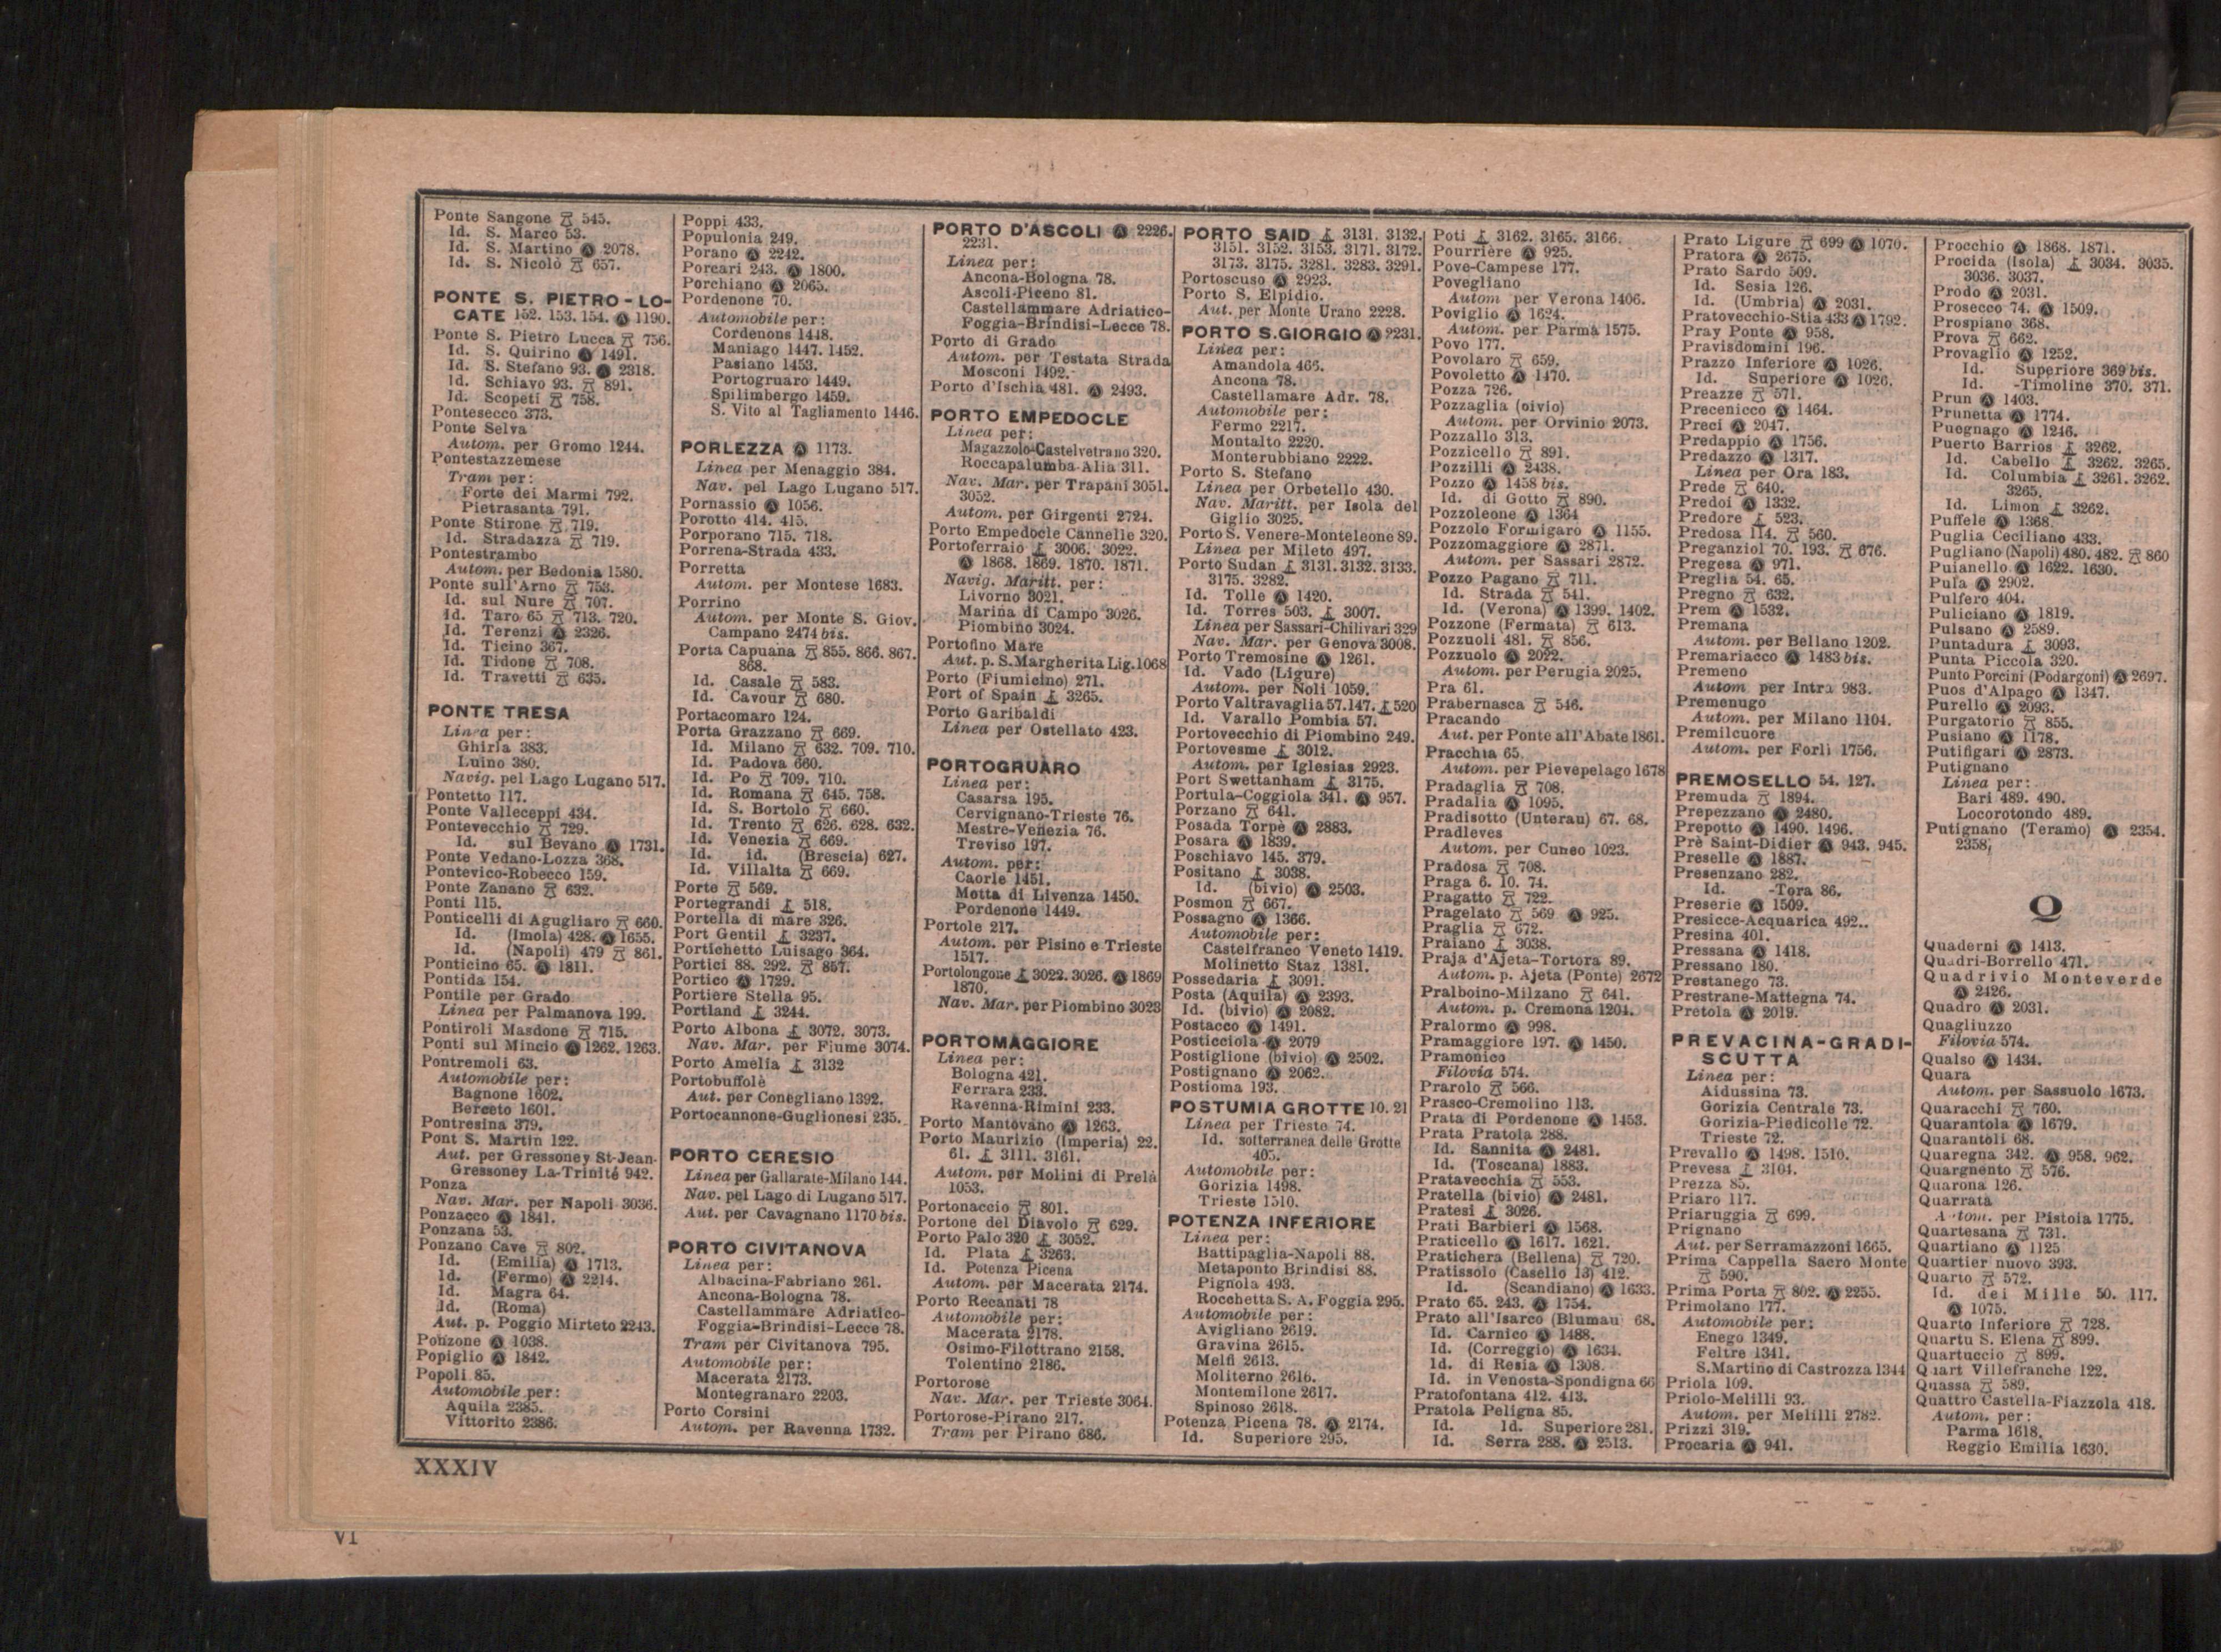 Ponte Sangone 545.
Id. S. Marco 53.
Id. S. Martino 2078.
Id. S. Nicolò 657.
PONTE S. PIETRO-LO-
CATE 152. 153. 154. 1190.
Ponte S. Pietro Lucca 756.
Id. S. Quirino 1491.
Id. S. Stefano 93. 2318.
Id. Schiavo 93. 891.
Id. Scopeti 758.
Pontesecco 373.
Ponte Selva
Autom. per Gromo 1244.
Pontestazzemese
Tram per:
Forte dei Marmi 792.
Pietrasanta 791.
Ponte Stirone 719.
Id. Stradazza 719.
Pontestrambo
Autom. per Bedonia 1580.
Ponte sull'Arno 753.
Id. sul Nure 707.
Id. Taro 65 713. 720.
Id. Terenzi 2326.
Id. Ticino 367.
Id. Tidone 708.
Id. Travetti 635.
PONTE TRESA
Linea per:
Ghirla 383.
Luino 380.
Navig. pel Lago Lugano 517.
Pontetto 117.
Ponte Valleceppi 434.
Pontevecchio 729.
Id. sul Bevano 1731.
Ponte Vedano-Lozza 368.
Pontevico-Robecco 159.
Ponte Zanano 632.
Ponti 115.
Ponticelli di Agugliaro 660.
Id. (Imola) 428. 1655.
Id. (Napoli) 479 861.
Ponticino 65. 1811.
Pontida 154.
Pontile per Grado
Linea per Palmanova 199.
Pontiroli Masdone 715.
Ponti sul Mincio 1262. 1263.
Pontremoli 63.
Automobile per:
Bagnone 1602.
Berceto 1601.
Pontresina 379.
Pont S. Martin 122.
Aut. per Gressoney St-Jean-
Gressoney La-Trinité 942.
Ponza
Nav. Mar. per Napoli 3036.
Ponzacco 1841.
Ponzana 53.
Ponzano Cave 802.
Id. (Emilia) 1713.
Id. (Fermo) 2214.
Id. Magra 64.
Id. (Roma)
Aut. p. Poggio Mirteto 2243.
Ponzone 1038.
Popiglio 1842.
Popoli 85.
Automobile per:
Aquila 2385.
Vittorito 2386.
Poppi 433.
Populonia 249.
Porano 2242.
Porcari 243. 1800.
Porchiano 2065.
Pordenone 70.
Automobile per:
Cordenons 1448.
Maniago 1447. 1452.
Pasiano 1453.
Portogruaro 1449.
Spilimbergo 1459.
S. Vito al Tagliamento 1446.
PORLEZZA 1173.
Linea per Menaggio 384.
Nav. pel Lago Lugano 517.
Pornassio 1056.
Porotto 414. 415.
Porporano 715. 718.
Porrena-Strada 433.
Porretta
Autom. per Montese 1683.
Porrino
Autom. per Monte S. Giov.
Campano 2474 bis.
Porta Capuana 855. 866. 867.
868.
Id. Casale 583.
Id. Cavour 680.
Portacomaro 124.
Porta Grazzano 669.
Id. Milano 632. 709. 710.
Id. Padova 660.
Id. Po 709. 710.
Id. Romana 645. 758.
Id. S. Bortolo 660.
Id. Trento 626. 628. 632.
Id. Venezia 669.
Id. id. (Brescia) 627.
Id. Villalta 669.
Porte 569.
Portegrandi 518.
Portella di mare 326.
Port Gentil 3237.
Portichetto Luisago 364.
Portici 88. 292. 857.
Portico 1729.
Portiere Stella 95.
Portland 3244.
Porto Albona 3072. 3073.
Nav. Mar. per Fiume 3074.
Porto Amelia 3132
Portobuffolè
Aut. per Conegliano 1392.
Portocannone-Guglionesi 235.
PORTO CERESIO
Linea per Gallarate-Milano 144.
Nav. pel Lago di Lugano 517.
Aut. per Cavagnano 1170 bis.
PORTO CIVITANOVA
Linea per:
Albacina-Fabriano 261.
Ancona-Bologna 78.
Castellammare Adriatico-
Foggia-Brindisi-Lecce 78.
Tram per Civitanova 795.
Automobile per:
Macerata 2173.
Montegranaro 2203.
Porto Corsini
Autom. per Ravenna 1732.
PORTO D'ASCOLI 2226.
2231.
Linea per:
Ancona-Bologna 78.
Ascoli-Piceno 81.
Castellammare Adriatico-
Foggia-Brindisi-Lecce 78.
Porto di Grado
Autom. per Testata Strada
Mosconi 1492.
Porto d'Ischia 481. 2493.
PORTO EMPEDOCLE
Linea per:
Magazzolo-Castelvetrano 320.
Roccapalumba-Alia 311.
Nav. Mar. per Trapani 3051.
3052.
Autom. per Girgenti 2724.
Porto Empedocle Cannelle 320.
Portoferraio 3006. 3022.
1868. 1869. 1870. 1871.
Navig. Maritt. per:
Livorno 3021.
Marina di Campo 3026.
Piombino 3024.
Portofino Mare
Aut. p. S. Margherita Lig. 1068
Porto (Fiumicino) 271.
Port of Spain 3265.
Porto Garibaldi
Linea per Ostellato 423.
PORTOGRUARO
Linea per:
Casarsa 195.
Cervignano-Trieste 76.
Mestre-Venezia 76.
Treviso 197.
Autom. per:
Caorle 1451.
Motta di Livenza 1450.
Pordenone 1449.
Portole 217.
Autom. per Pisino e Trieste
1517.
Portolongone 3022. 3026. 1869
1870.
Nav. Mar. per Piombino 3023
PORTOMAGGIORE
Linea per:
Bologna 421.
Ferrara 233.
Ravenna-Rimini 233.
Porto Mantovano 1263.
Porto Maurizio (Imperia) 22.
61. 3111. 3161.
Autom. per Molini di Prelà
1053.
Portonaccio 801.
Portone del Diavolo 629.
Porto Palo 320 3052.
Id. Plata 3263.
Id. Potenza Picena
Autom. per Macerata 2174.
Porto Recanati 78
Automobile per:
Macerata 2178.
Osimo-Filottrano 2158.
Tolentino 2186.
Portorose
Nav. Mar. per Trieste 3064.
Portorose-Pirano 217.
Tram per Pirano 686.
PORTO SAID 3131. 3132.
3151. 3152. 3153. 3171. 3172.
3173. 3175. 3281. 3283. 3291.
Portoscuso 2923.
Porto S. Elpidio.
Aut. per Monte Urano 2228.
PORTO S. GIORGIO 2231.
Linea per:
Amandola 466.
Ancona 78.
Castellamare Adr. 78.
Automobile per:
Fermo 2217.
Montalto 2220.
Monterubbiano 2222.
Porto S. Stefano
Linea per Orbetello 430.
Nav. Maritt. per Isola del
Giglio 3025.
Porto S. Venere-Monteleone 89.
Linea per Mileto 497.
Porto Sudan 3131. 3132. 3133.
3175. 3282.
Id. Tolle 1420.
Id. Torres 503. 3007.
Linea per Sassari-Chilivari 329
Nav. Mar. per Genova 3008.
Porto Tremosine 1261.
Id. Vado (Ligure)
Autom. per Noli 1059.
Porto Valtravaglia 57. 147. 520
Id. Varallo Pombia 57.
Portovecchio di Piombino 249.
Portovesme 3012.
Autom. per Iglesias 2923.
Port Swettanham 3175.
Portula-Coggiola 341. 957.
Porzano 641.
Posada Torpè 2883.
Posara 1839.
Poschiavo 145. 379.
Positano 3038.
Id. (bivio) 2503.
Posmon 667.
Possagno 1366.
Automobile per:
Castelfranco Veneto 1419.
Molinetto Staz. 1381.
Possedaria 3091.
Posta (Aquila) 2393.
Id. (bivio) 2082.
Postacco 1491.
Posticciola 2079
Postiglione (bivio) 2502.
Postignano 2062.
Postioma 193.
POSTUMIA GROTTE 10. 21
Linea per Trieste 74.
Id. sotterranea delle Grotte
405.
Automobile per:
Gorizia 1498.
Trieste 1510.
POTENZA INFERIORE
Linea per:
Battipaglia-Napoli 88.
Metaponto Brindisi 88.
Pignola 493.
Rocchetta S. A. Foggia 295.
Automobile per:
Avigliano 2619.
Gravina 2615.
Melfi 2613.
Moliterno 2616.
Montemilone 2617.
Spinoso 2618.
Potenza Picena 78. 2174.
Id. Superiore 295.
Poti 3162. 3165. 3166.
Pourrière 925.
Pove-Campese 177.
Povegliano
Autom per Verona 1406.
Poviglio 1624.
Autom. per Parma 1575.
Povo 177.
Povolaro 659.
Povoletto 1470.
Pozza 726.
Pozzaglia (oivio)
Autom. per Orvinio 2073.
Pozzallo 313.
Pozzicello 891.
Pozzilli 2438.
Pozzo 1458 bis.
Id. di Gotto 890.
Pozzoleone 1364
Pozzolo Formigaro 1155.
Pozzomaggiore 2871.
Autom. per Sassari 2872.
Pozzo Pagano 711.
Id. Strada 541.
Id. (Verona) 1399. 1402.
Pozzone (Fermata) 613.
Pozzuoli 481. 856.
Pozzuolo 2022.
Autom. per Perugia 2025.
Pra 61.
Prabernasca 546.
Pracando
Aut. per Ponte all'Abate 1861.
Pracchia 65.
Autom. per Pievepelago 1678
Pradaglia 708.
Pradalia 1095.
Pradisotto (Unterau) 67. 68.
Pradleves
Autom. per Cuneo 1023.
Pradosa 708.
Praga 6. 10. 74.
Pragatto 722.
Pragelato 569 925.
Praglia 672.
Praiano 3038.
Praja d'Ajeta-Tortora 89.
Autom. p. Ajeta (Ponte) 2672
Pralboino-Milzano 641.
Autom. p. Cremona 1204.
Pralormo 998.
Pramaggiore 197. 1450.
Pramonico
Filovia 574.
Prarolo 566.
Prasco-Cremolino 113.
Prata di Pordenone 1453.
Prata Pratola 288.
Id. Sannita 2481.
Id. (Toscana) 1883.
Pratavecchia 553.
Pratella (bivio) 2481.
Pratesi 3026.
Prati Barbieri 1568.
Praticello 1617. 1621.
Pratichera (Bellena) 720.
Pratissolo (Casello 13) 412.
Id. (Scandiano) 1633.
Prato 65. 243. 1754.
Prato all'Isarco (Blumau 68.
Id. Carnico 1488.
Id. (Correggio) 1634.
Id. di Resia 1308.
Id. in Venosta-Spondigna 66
Pratofontana 412. 413.
Pratola Peligna 85.
Id. Id. Superiore 281.
Id. Serra 288. 2513.
Prato Ligure 699 1070.
Pratora 2675.
Prato Sardo 509.
Id. Sesia 126.
Id. (Umbria) 2031.
Pratovecchio-Stia 433 1792.
Pray Ponte 958.
Pravisdomini 196.
Prazzo Inferiore 1026.
Id. Superiore 1026.
Preazze 571.
Precenicco 1464.
Preci 2047.
Predappio 1756.
Predazzo 1317.
Linea per Ora 183.
Prede 640.
Predoi 1332.
Predore 523.
Predosa 114. 560.
Preganziol 70. 193. 676.
Pregesa 971.
Preglia 54. 65.
Pregno 632.
Prem 1532.
Premana
Autom. per Bellano 1202.
Premariacco 1483 bis.
Premeno
Autom per Intra 983.
Premenugo
Autom. per Milano 1104.
Premilcuore
Autom. per Forlì 1756.
PREMOSELLO 54. 127.
Premuda 1894.
Prepezzano 2480.
Prepotto 1490. 1496.
Prè Saint-Didier 943. 945.
Preselle 1887.
Presenzano 282.
Id. -Tora 86.
Preserie 1509.
Presicce-Acquarica 492..
Presina 401.
Pressana 1418.
Pressano 180.
Prestanego 73.
Prestrane-Mattegna 74.
Pretola 2019.
PREVACINA-GRADI-
SCUTTA
Linea per:
Aidussina 73.
Gorizia Centrale 73.
Gorizia-Piedicolle 72.
Trieste 72.
Prevallo 1498. 1510.
Prevesa 3104.
Prezza 85.
Priaro 117.
Priaruggia 699.
Prignano
Aut. per Serramazzoni 1665.
Prima Cappella Sacro Monte
590.
Prima Porta 802. 2255.
Primolano 177.
Automobile per:
Enego 1349.
Feltre 1341.
S. Martino di Castrozza 1344
Priola 109.
Priolo-Melilli 93.
Autom. per Melilli 2782.
Prizzi 319.
Procaria 941.
Procchio 1868. 1871.
Procida (Isola) 3034. 3035.
3036. 3037.
Prodo 2031.
Prosecco 74. 1509.
Prospiano 368.
Prova 662.
Provaglio 1252.
Id. Superiore 369 bis.
Id. -Timoline 370. 371.
Prun 1403.
Prunetta 1774.
Puegnago 1246.
Puerto Barrios 3262.
Id. Cabello 3262. 3265.
Id. Columbia 3261. 3262.
3265.
Id. Limon 3262.
Puffele 1368.
Puglia Ceciliano 433.
Pugliano (Napoli) 480. 482. 860
Puianello 1622. 1630.
Pula 2902.
Pulfero 404.
Puliciano 1819.
Pulsano 2589.
Puntadura 3093.
Punta Piccola 320.
Punto Porcini (Podargoni) 2697.
Puos d'Alpago 1347.
Purello 2093.
Purgatorio 855.
Pusiano 1178.
Putifigari 2873.
Putignano
Linea per:
Bari 489. 490.
Locorotondo 489.
Putignano (Teramo) 2354.
2358.
Q
Quaderni 1413.
Quadri-Borrello 471.
Quadrivio Monteverde
2426.
Quadro 2031.
Quagliuzzo
Filovia 574.
Qualso 1434.
Quara
Autom. per Sassuolo 1673.
Quaracchi 760.
Quarantola 1679.
Quarantoli 68.
Quaregna 342. 958. 962.
Quargnento 576.
Quarona 126.
Quarrata
Autom. per Pistoia 1775.
Quartesana 731.
Quartiano 1125
Quartier nuovo 393.
Quarto 572.
Id. dei Mille 50. 117.
1075.
Quarto Inferiore 728.
Quartu S. Elena 899.
Quartuccio 899.
Quart Villefranche 122.
Quassa 589.
Quattro Castella-Fiazzola 418.
Autom. per:
Parma 1618.
Reggio Emilia 1630.
XXXIV
VI